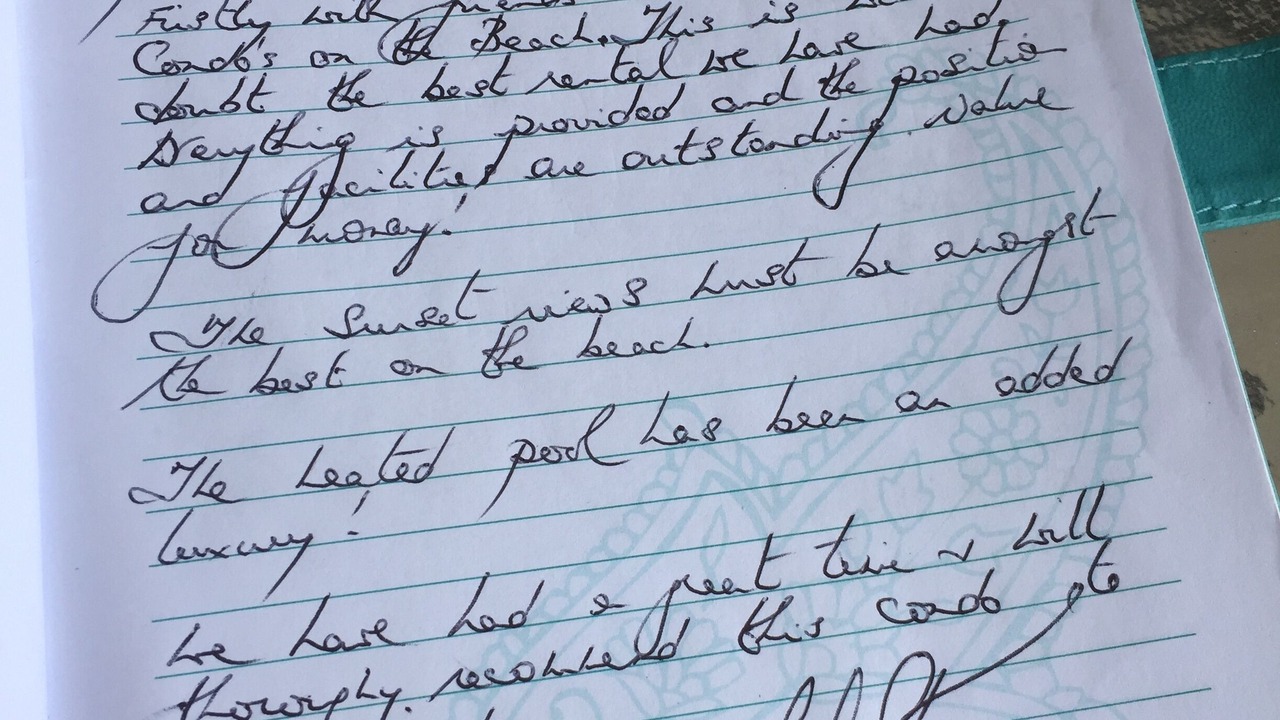 Firstly with friends
Condo's on the Beach. This is
doubt the best rental we have had.
Everything is provided and the position
and facilities are outstanding. Value
for money!
The sunset views must be amongst
the best on the beach.
The heated pool has been an added
luxury!
We have had a great time & will
thoroughly recommend this condo to